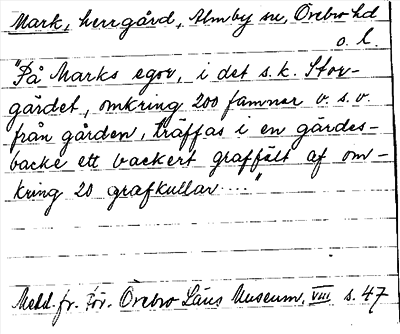 Mark, herrgård, Almby sn, Örebro hd
o. l.
"På Marks egor, i det s.k. Stor-
gärdet, omkring 200 famnar v. s.v.
från gården, träffas i en gärdes-
backe ett vackert graffält af om-
kring 20 grafkullar ...."
Medd. fr. För. Örebro Läns Museum, VIII s. 47